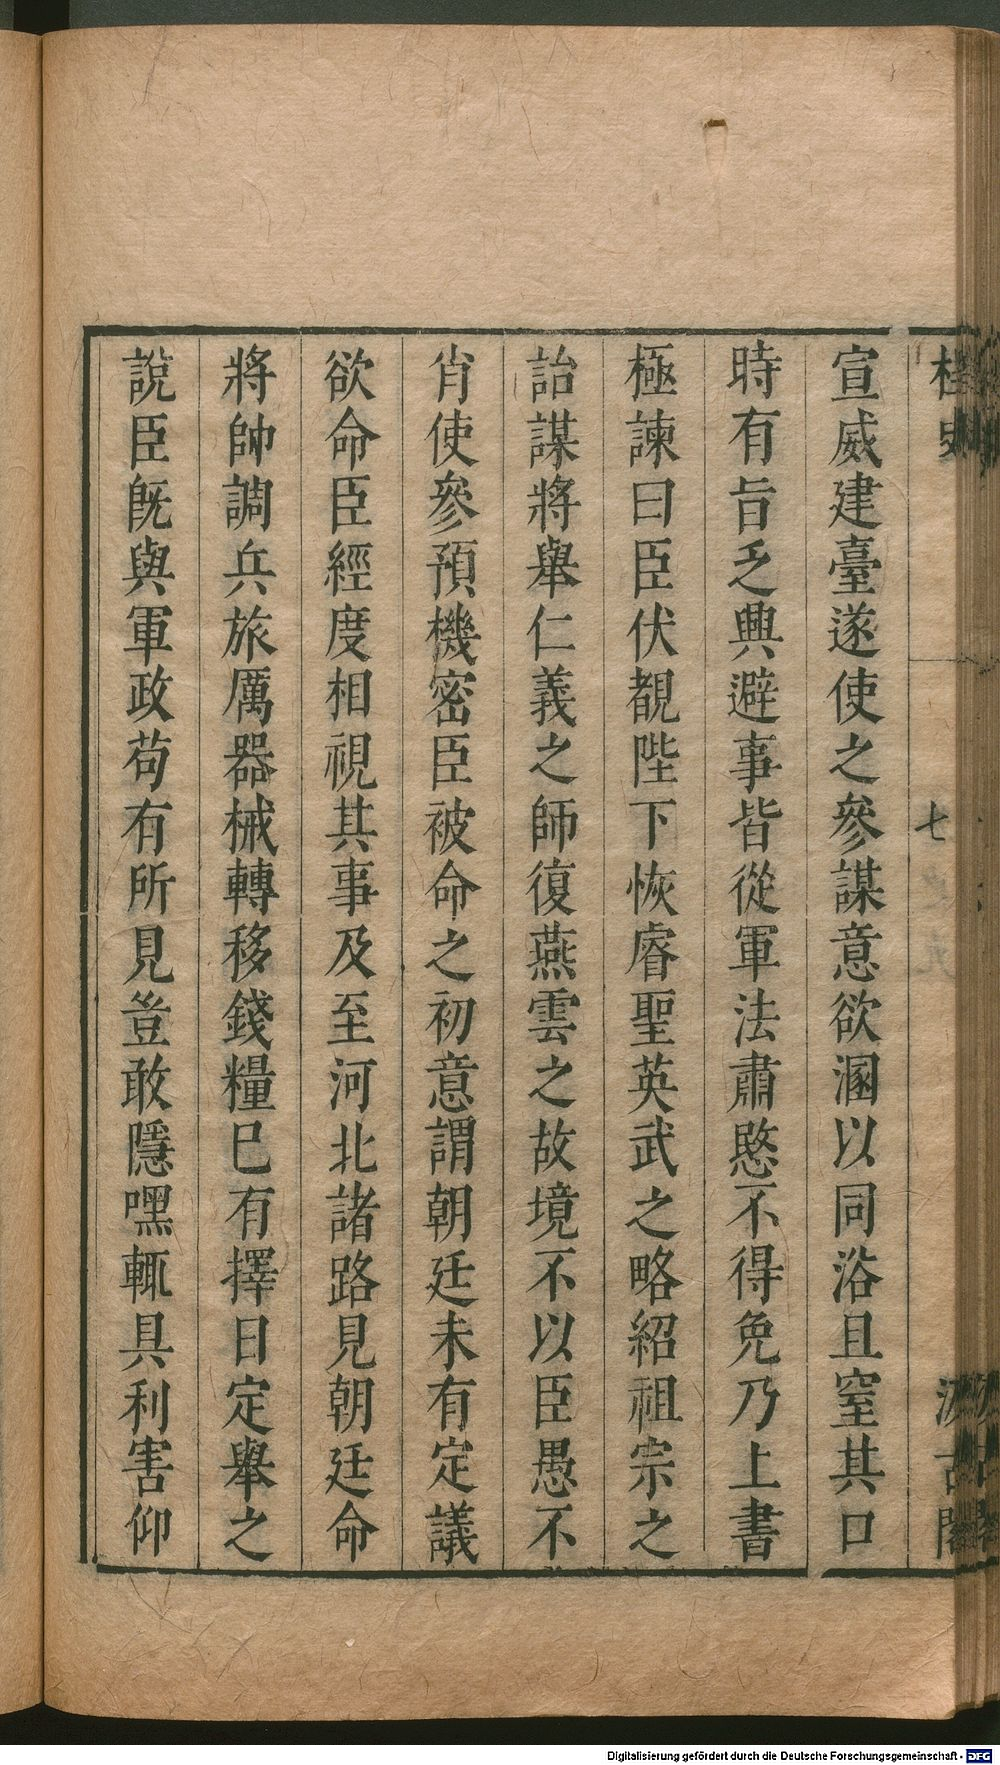 桯史
七
汲古閣
宣威建臺遂使之參謀意欲溷以同浴且窒其口
時有旨乏興避事皆從軍法肅愍不得免乃上書
極諫曰臣伏覩陛下恢睿聖英武之略紹祖宗之
詒謀將舉仁義之師復燕雲之故境不以臣愚不
肖使參預機密臣被命之初意謂朝廷未有定議
欲命臣經度相視其事及至河北諸路見朝廷命
將帥調兵旅厲器械轉移錢糧巳有擇日定舉之
說臣旣與軍政苟有所見豈敢隱嘿輒具利害仰
Digitalisierung gefördert durch die Deutsche Forschungsgemeinschaft - DFG